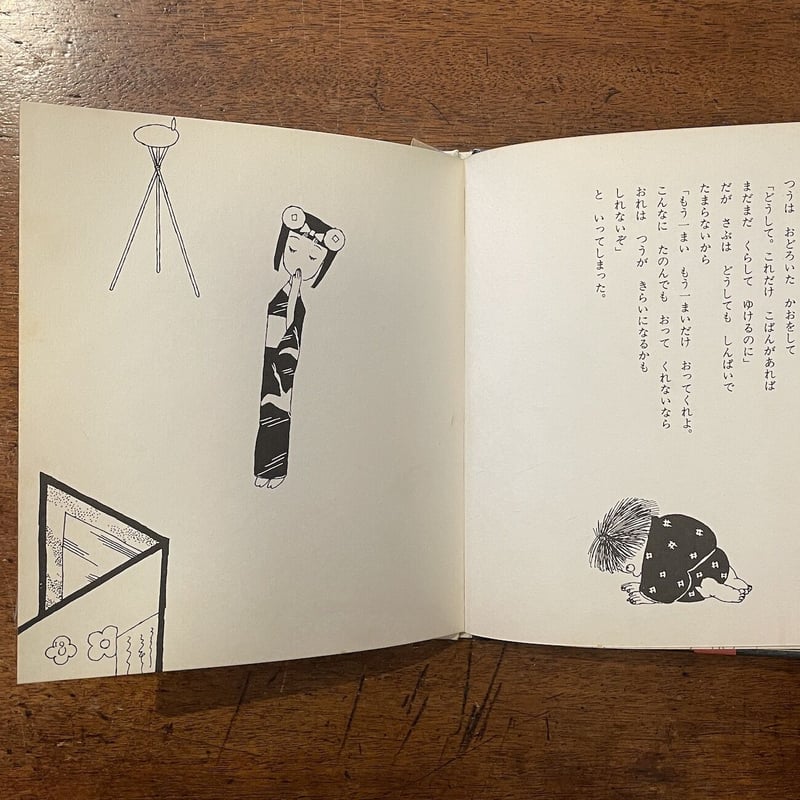 つうは　おどろいた　かおをして
「どうして。これだけ　こばんがあれば
まだまだ　くらして　ゆけるのに」
だが　さぶは　どうしても　しんぱいで
たまらないから
「もう一まい　もう一まいだけ　おってくれよ。
こんなに　たのんでも　おって　くれないなら
おれは　つうが　きらいになるかも
しれないぞ」
と　いってしまった。